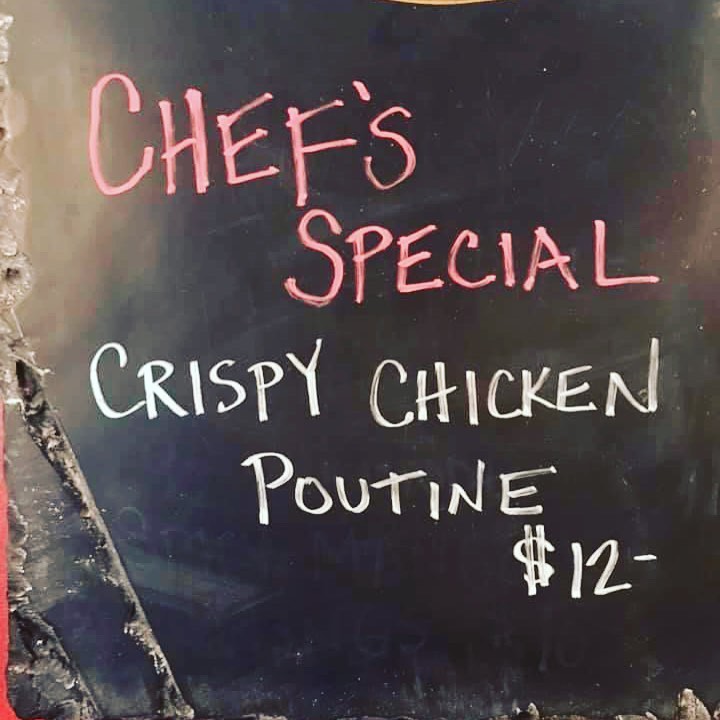 CHEF'S
SPECIAL
CRISPY CHICKEN
POUTINE
$12-